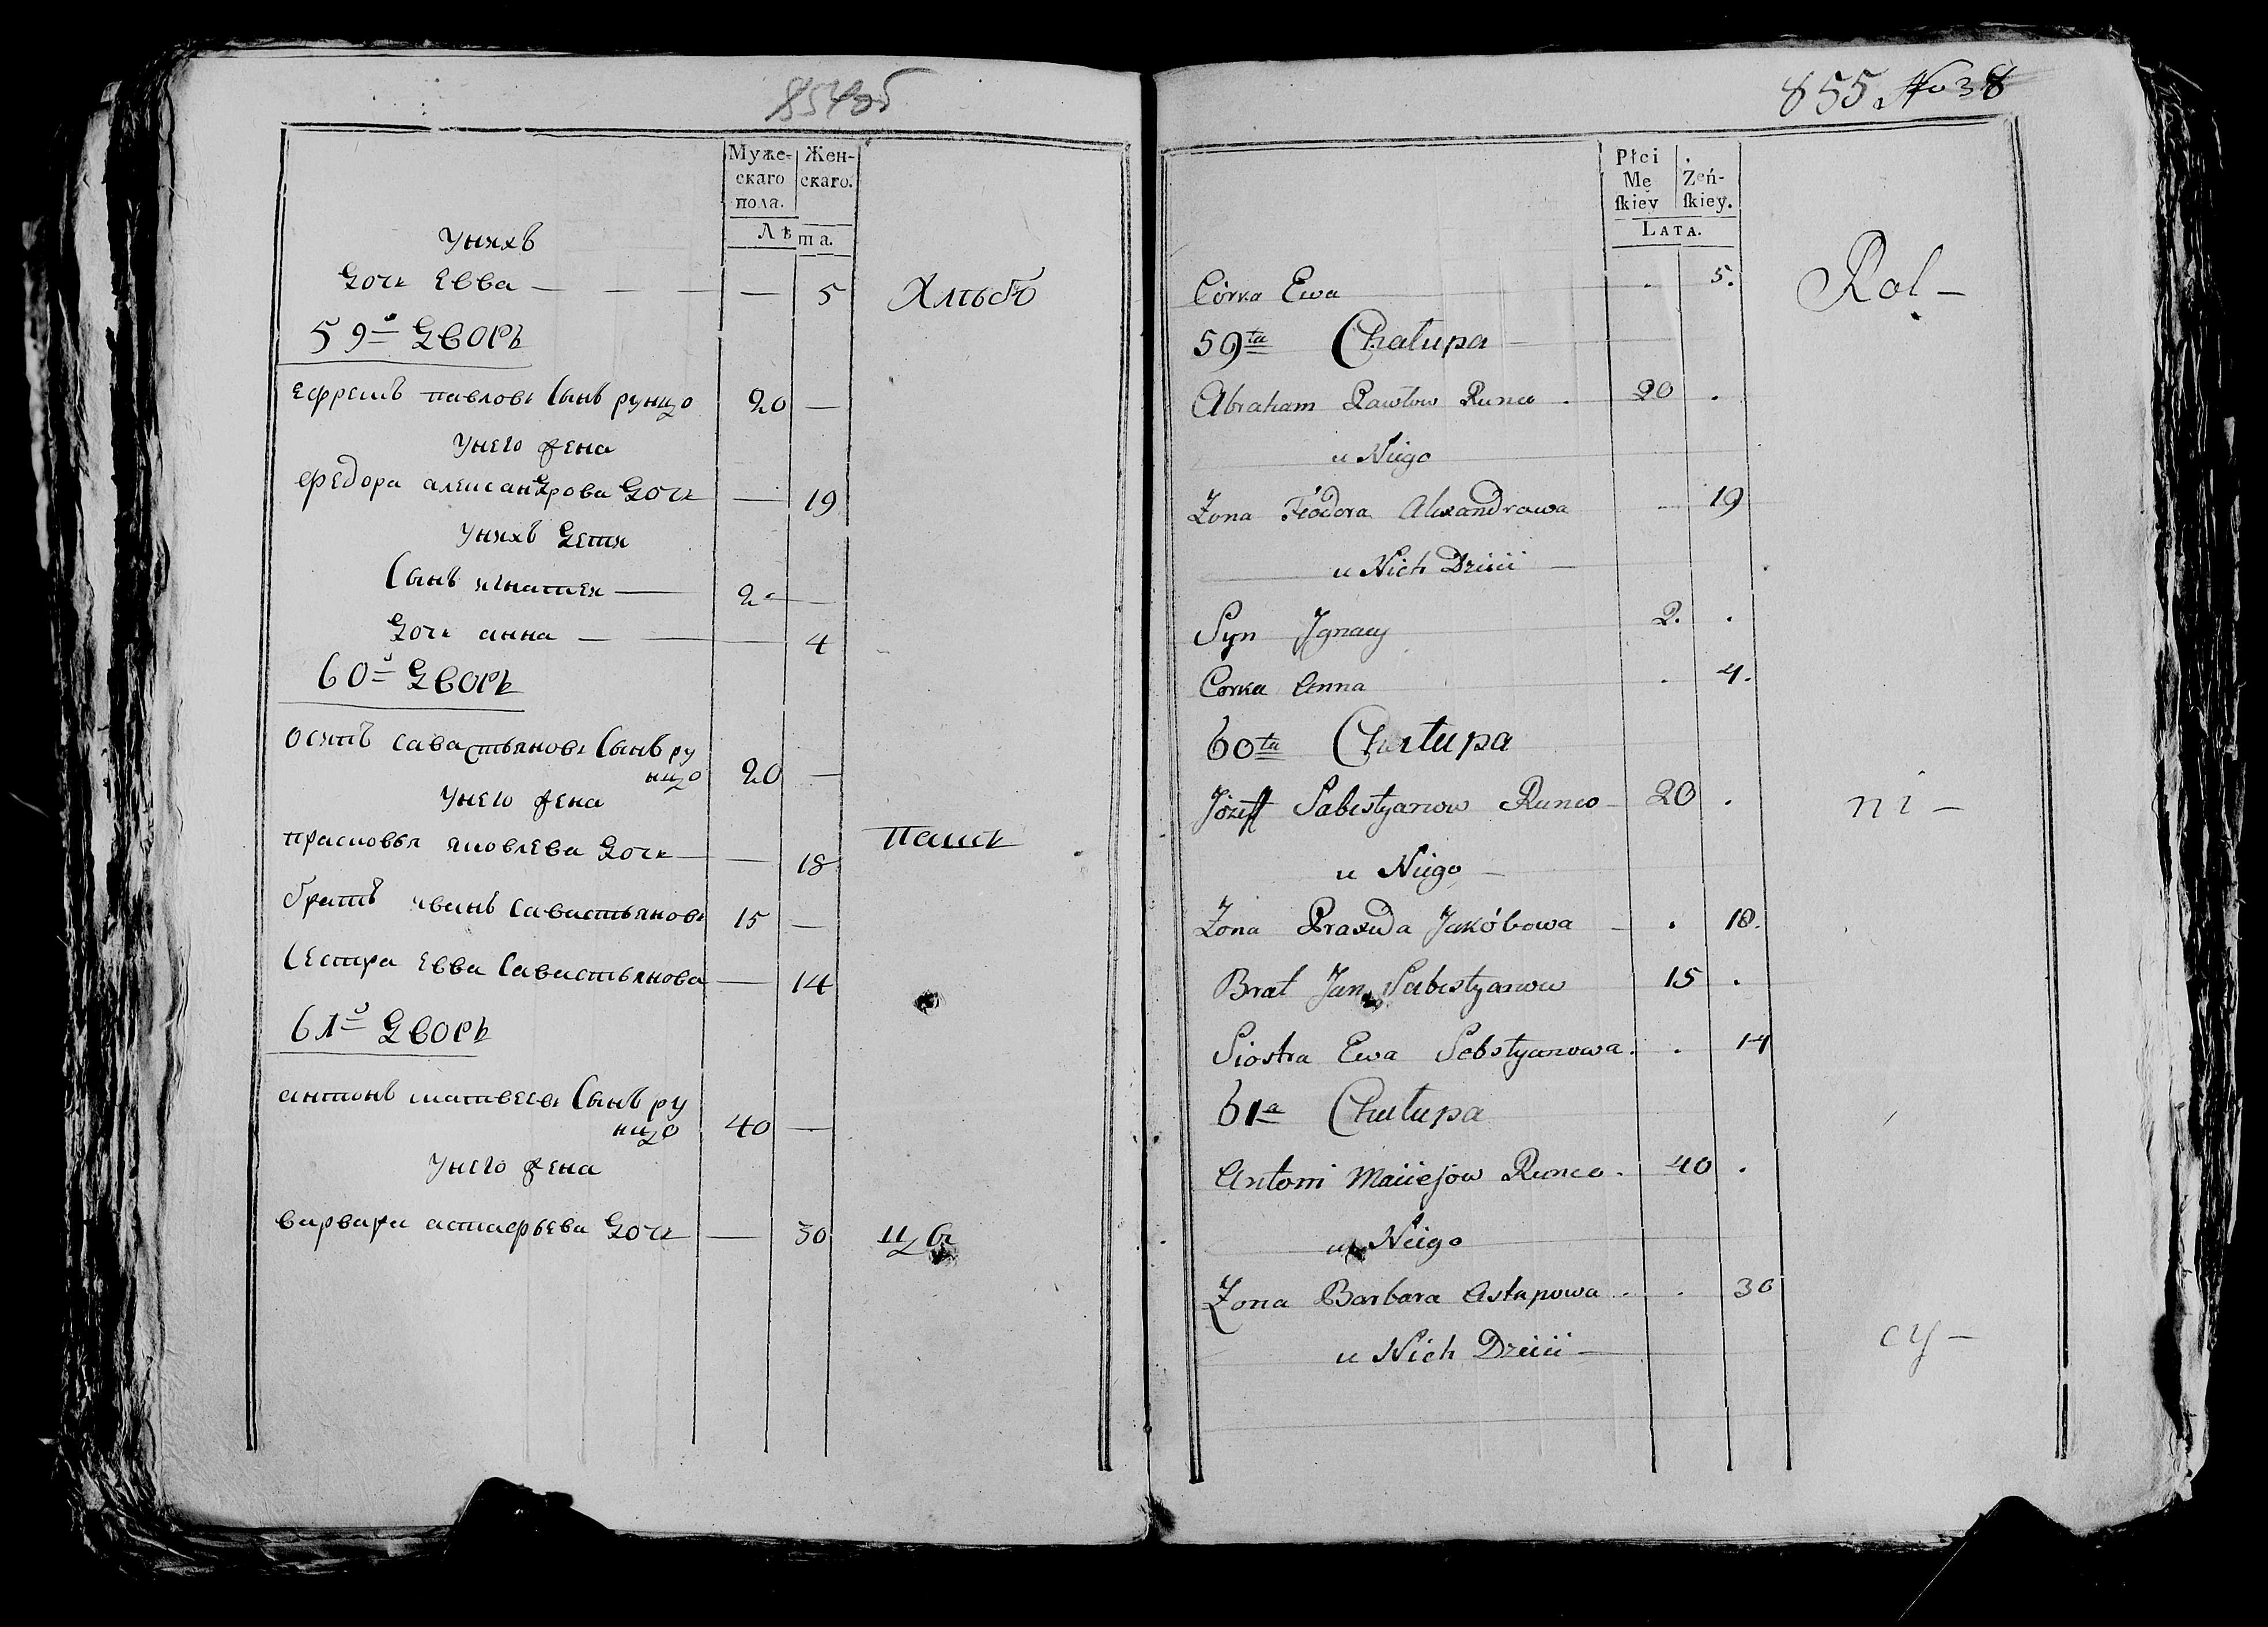 854об
Муже-
скаго
пола.
Жен-
скаго.
Лѣта.
унихъ
дочь евва — — — — 5
Хлѣбо
59й дворъ
ефремъ павловъ сынъ рунцо 20 —
унего жена
федора александрова дочь — 19
унихъ дети
сынъ игнатей — 2 —
дочь анна — — — 4
60й дворъ
осипъ савастьяновъ сынъ ру
нцо 20 —
унего жена
прасковья яковлева дочь — — 18
пашъ
братъ иванъ савастьяновъ 15 —
сестра евва савастьянова — 14
61й дворъ
антонъ матвеевъ сынъ ру
нцо 40 —
унего жена
варвара астафьева дочь — 30
цы
855 No 38
Płci
Mę
skiey
Żeń-
skiey.
LATA.
Córka Ewa . 5.
Rol —
59ta Chałupa
Abraham Pawłow Runco . 20 .
u Niego
Żona Teodora Alexandrowa — 19
u Nich Dzieci —
Syn Jgnacy 2. .
Corka Anna . 4.
60ta Chałupa
Józeff Sabestyanow Runco — 20 .
ni —
u Niego —
Żona Praxeda Jakóbowa — . 18.
Brat Jan Sabestyanow 15 .
Siostra Ewa Sebstyanowa . . 14
61a Chałupa
Antoni Maciejow Runco . 40 .
u Niego
Żona Barbara Astapowa . . 30
u Nich Dzieci —
cy —